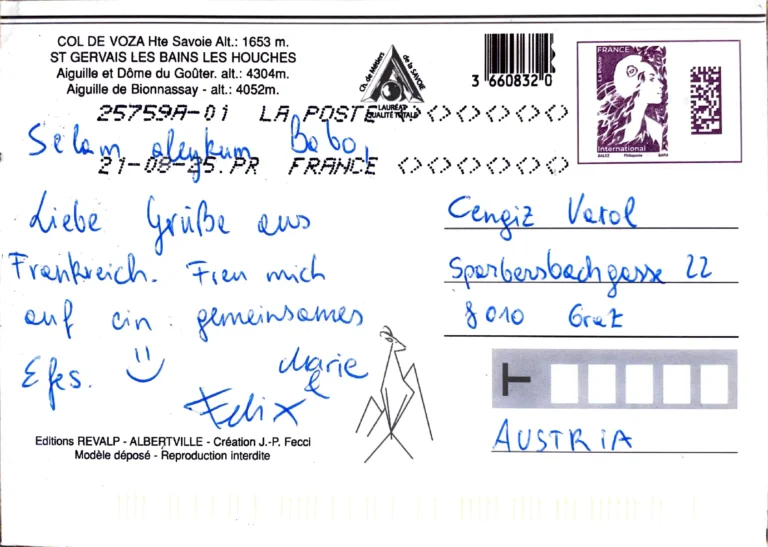 COL DE VOZA Hte Savoie Alt.: 1653 m.
ST GERVAIS LES BAINS LES HOUCHES
Aiguille et Dôme du Goûter. alt.: 4304m.
Aiguille de Bionnassay - alt.: 4052m.
Ch. de Métiers de la SAVOIE
LAURÉAT
QUALITÉ TOTALE
3 660832 0
FRANCE
La Poste
International
25759A-01 LA POSTE
21-08-25.PR FRANCE
Selam aleykum Babo,
Liebe Grüße aus
Frankreich. Freu mich
auf ein gemeinsames
Efes.
Marie
&
Felix
Cengiz Varol
Sparbersbachgasse 22
8010 Graz
T
AUSTRIA
Editions REVALP - ALBERTVILLE - Création J.-P. Fecci
Modèle déposé - Reproduction interdite